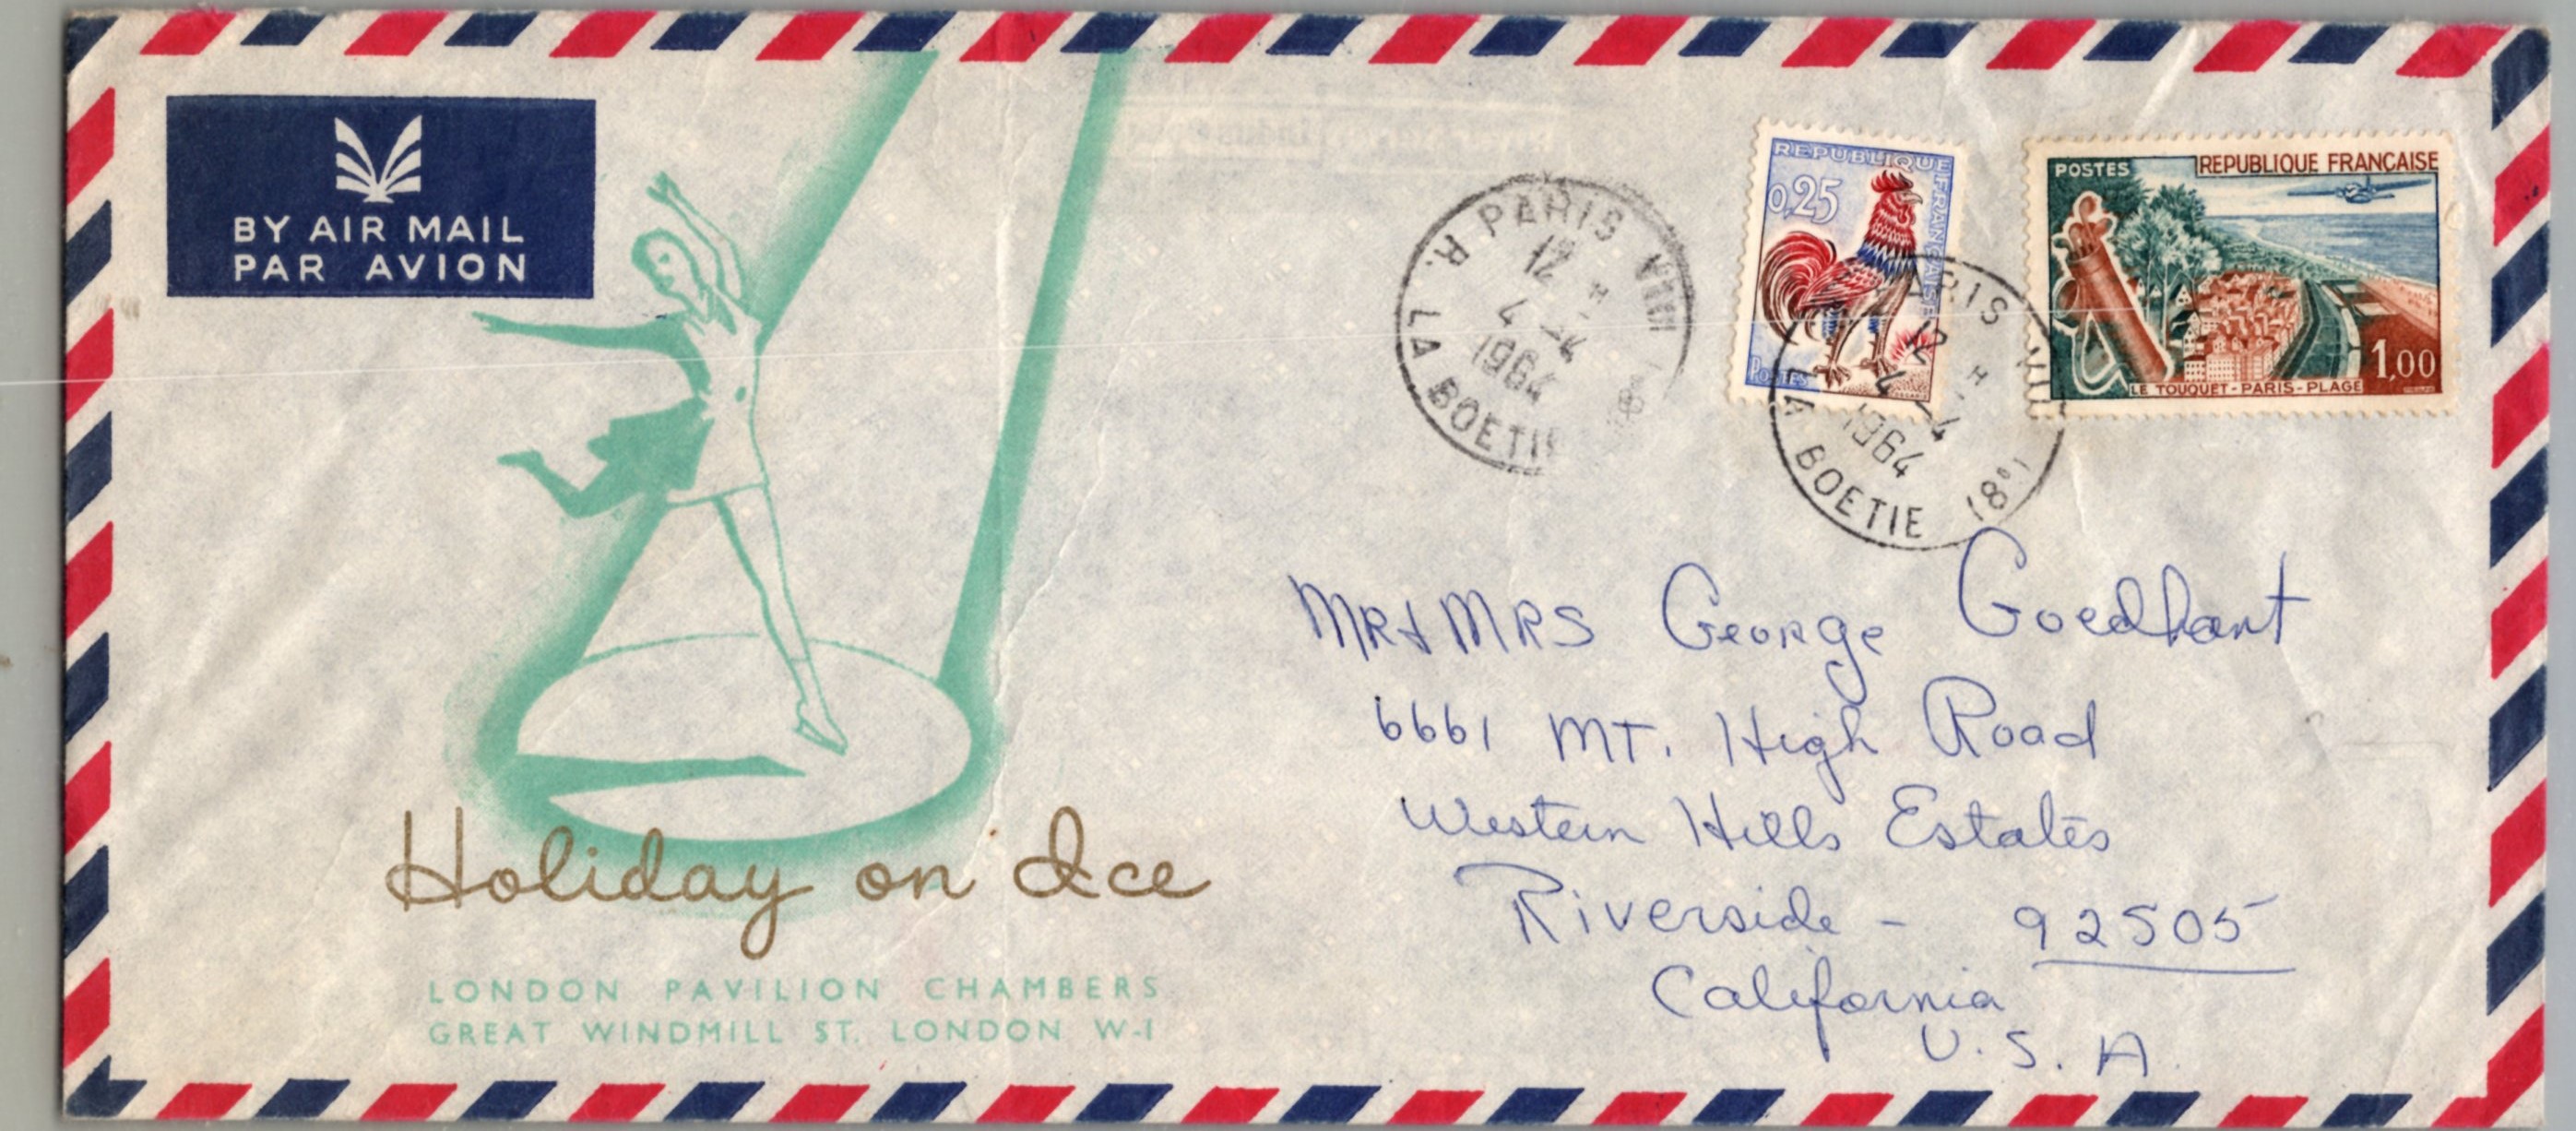 BY AIR MAIL
PAR AVION
Holiday on Ice
LONDON PAVILION CHAMBERS
GREAT WINDMILL ST. LONDON W-1
PARIS VIII
R. LA BOETIE
12 H
4-4
1964
REPUBLIQUE FRANÇAISE
0,25
POSTES
PARIS VIII
LA BOETIE (8e)
12 H
4-4
1964
POSTES
REPUBLIQUE FRANÇAISE
1,00
LE TOUQUET-PARIS-PLAGE
MR & MRS George Goedhart
6661 MT. High Road
Western Hills Estates
Riverside - 92505
California
U.S.A.